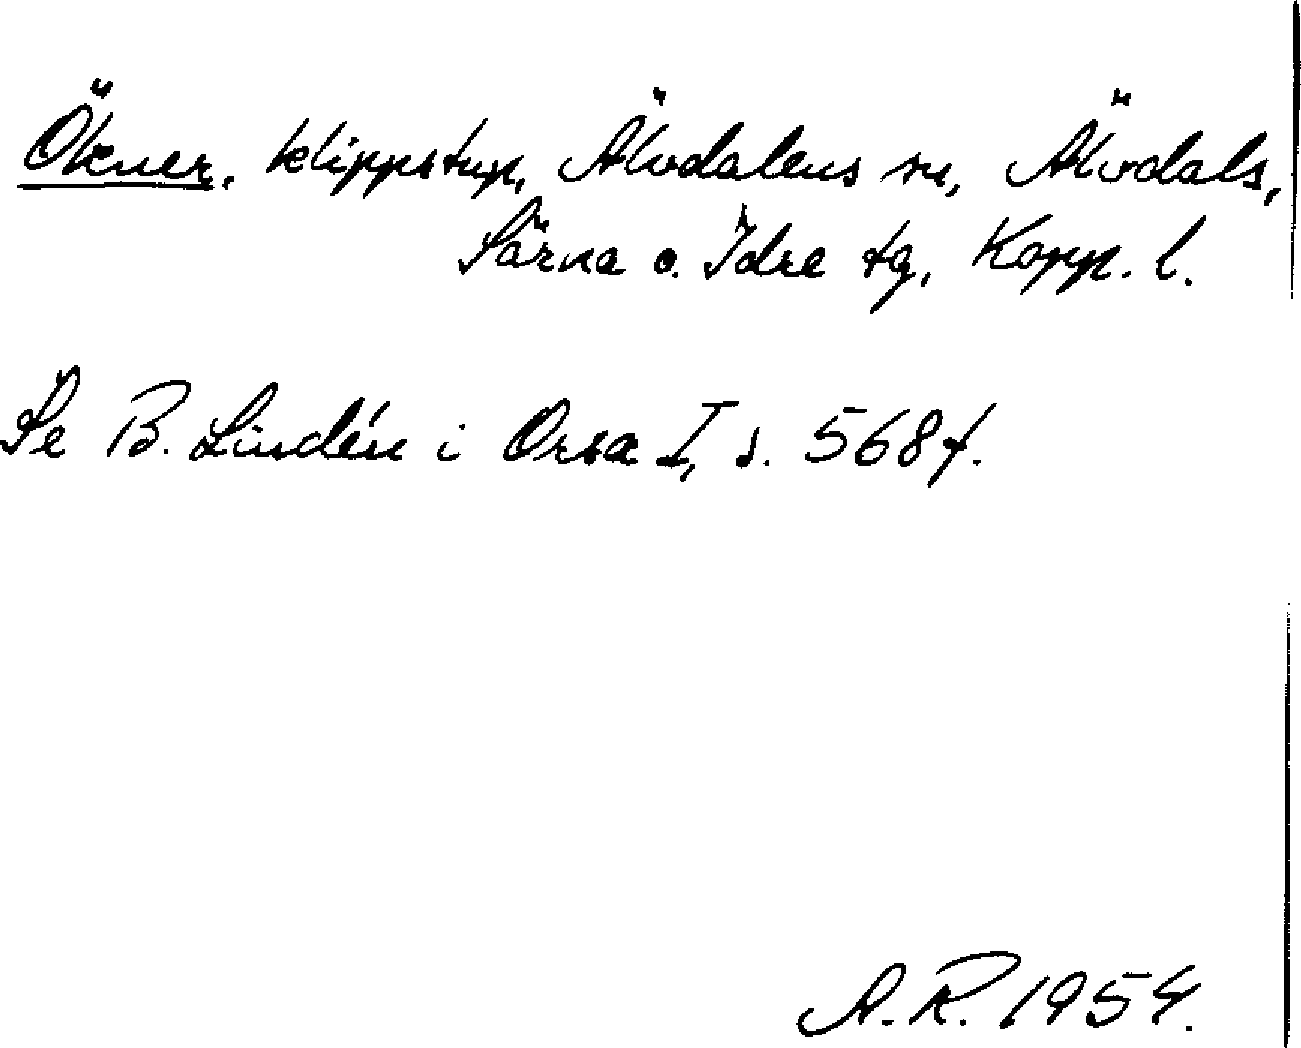 Ökner, klippstup, Älvdalens sn, Älvdals,
Särna o. Idre tg, Kopp. l.
Se B. Lindén i Orsa I, s. 568 f.
A. R. 1954.